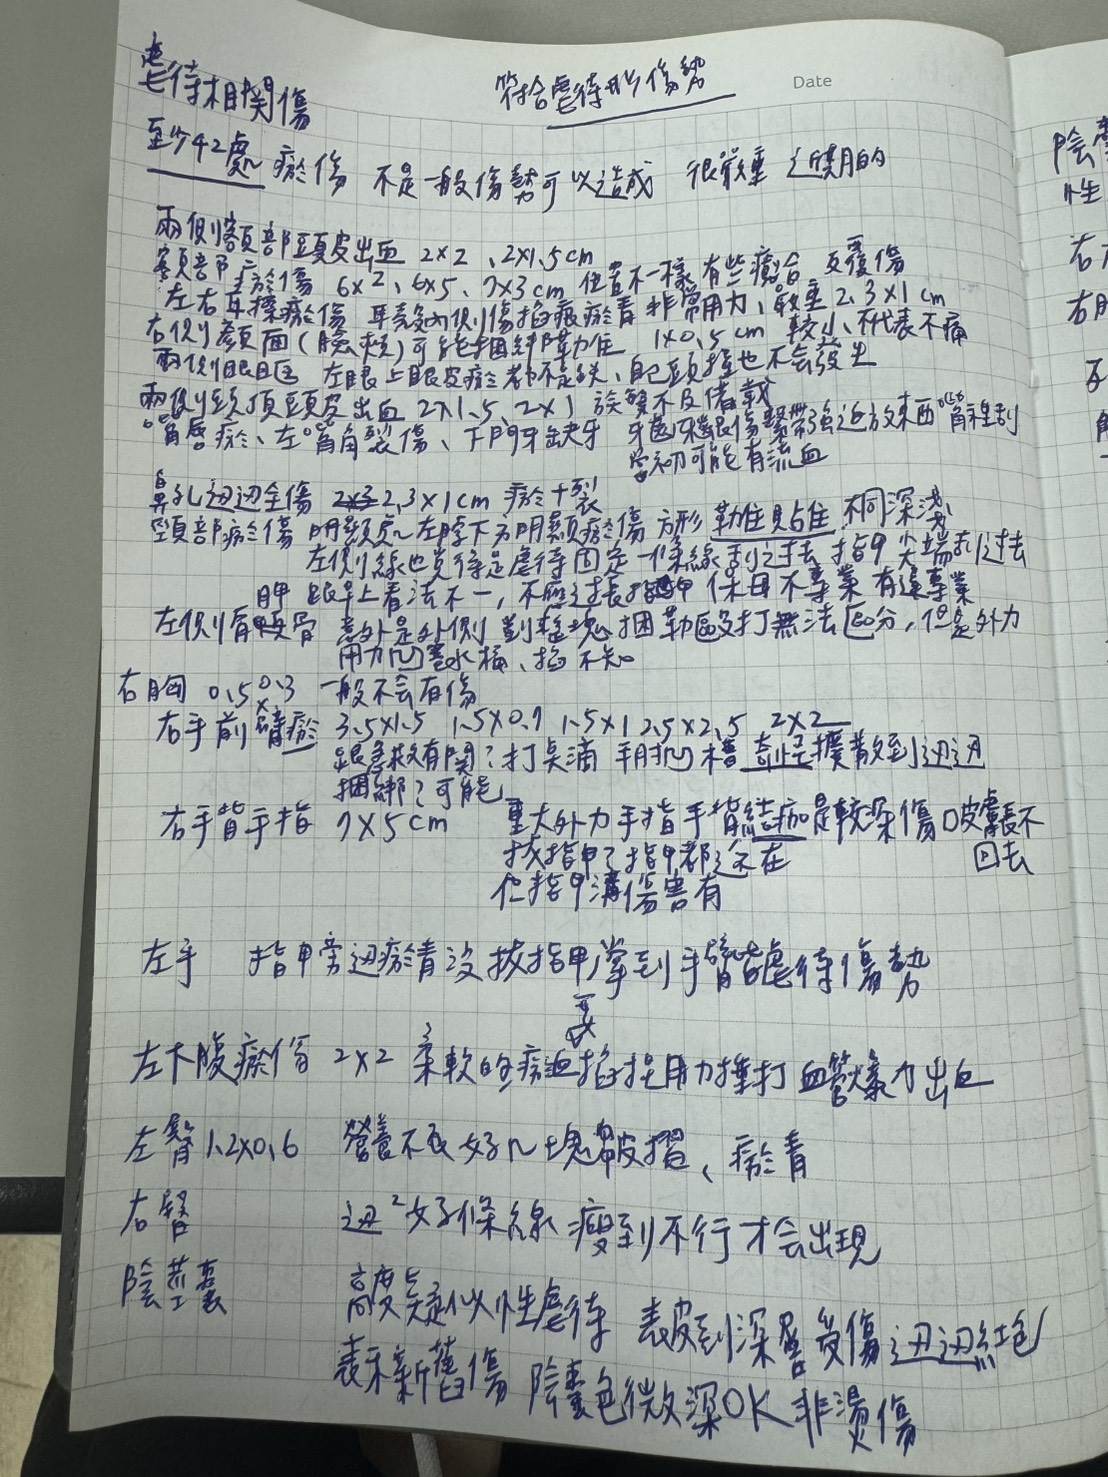 虐待相關傷
符合虐待形傷勢
Date
至少42處瘀傷 不是一般傷勢可以造成 很嚴重 近期的
兩側額部頭皮出血 2×2、2×1.5cm
額部瘀傷 6×2、6×5、7×3cm 位置不一樣 有些癒合 反覆傷
左右耳揉瘀傷 耳殼內側傷掐痕瘀青 非常用力、嚴重 2.3×1cm
右側顏面(臉頰)可能捆綁勒住 1×0.5cm 較小、不代表不痛
兩側眼眶 左眼上眼皮瘀都不是跌、自己頭撞也不会發生
兩側頭頂頭皮出血 2×1.5、2×1 該類不及備載
嘴唇瘀、左嘴角裂傷、下門牙缺牙 牙齒牙齦傷繫帶強迫放東西嘴裡刮
當初可能有流血
鼻孔边边全傷 2.3×1cm 瘀+裂
頸部瘀傷 明顯處左脖下方明顯瘀傷 方形 勒住貼住 不同深淺
左側線也覺得是虐待 固定一條線刮过去 指甲尖端刮过去
胛 跟早上看法不一,不應过長指甲 保母不專業 有違專業
左側肩頸骨 意外是外側 對整塊捆勒毆打無法区分,但是外力
用力凹塞水桶、掐 不知。
右胸 0.5×0.3 一般不会有傷
右手前臂瘀 3.5×1.5 1.5×0.9 1.5×1 2.5×2.5 2×2
跟急救有関?打点滴 手肘凹槽 奇怪擴散到边边
捆綁?可能
右手背手指 7×5cm 重大外力手指手背結痂是較深傷口皮膚長不
回去
拔指甲?指甲都还在
但指甲溝傷害有
左手 指甲旁边瘀青沒拔指甲,掌到手臂皆虐待傷勢
左下腹瘀傷 2×2 柔軟的瘀血要掐捏用力捶打 血管爆力出血
左臀 1.2×0.6 營養不良好几塊皺摺、瘀青
右臀 边²好多條線 瘦到不行才会出現
陰莖囊 高度疑似性虐待 表皮到深層受傷 边边紅色
表示新舊傷 陰囊色微深OK 非燙傷
陰囊
性
右